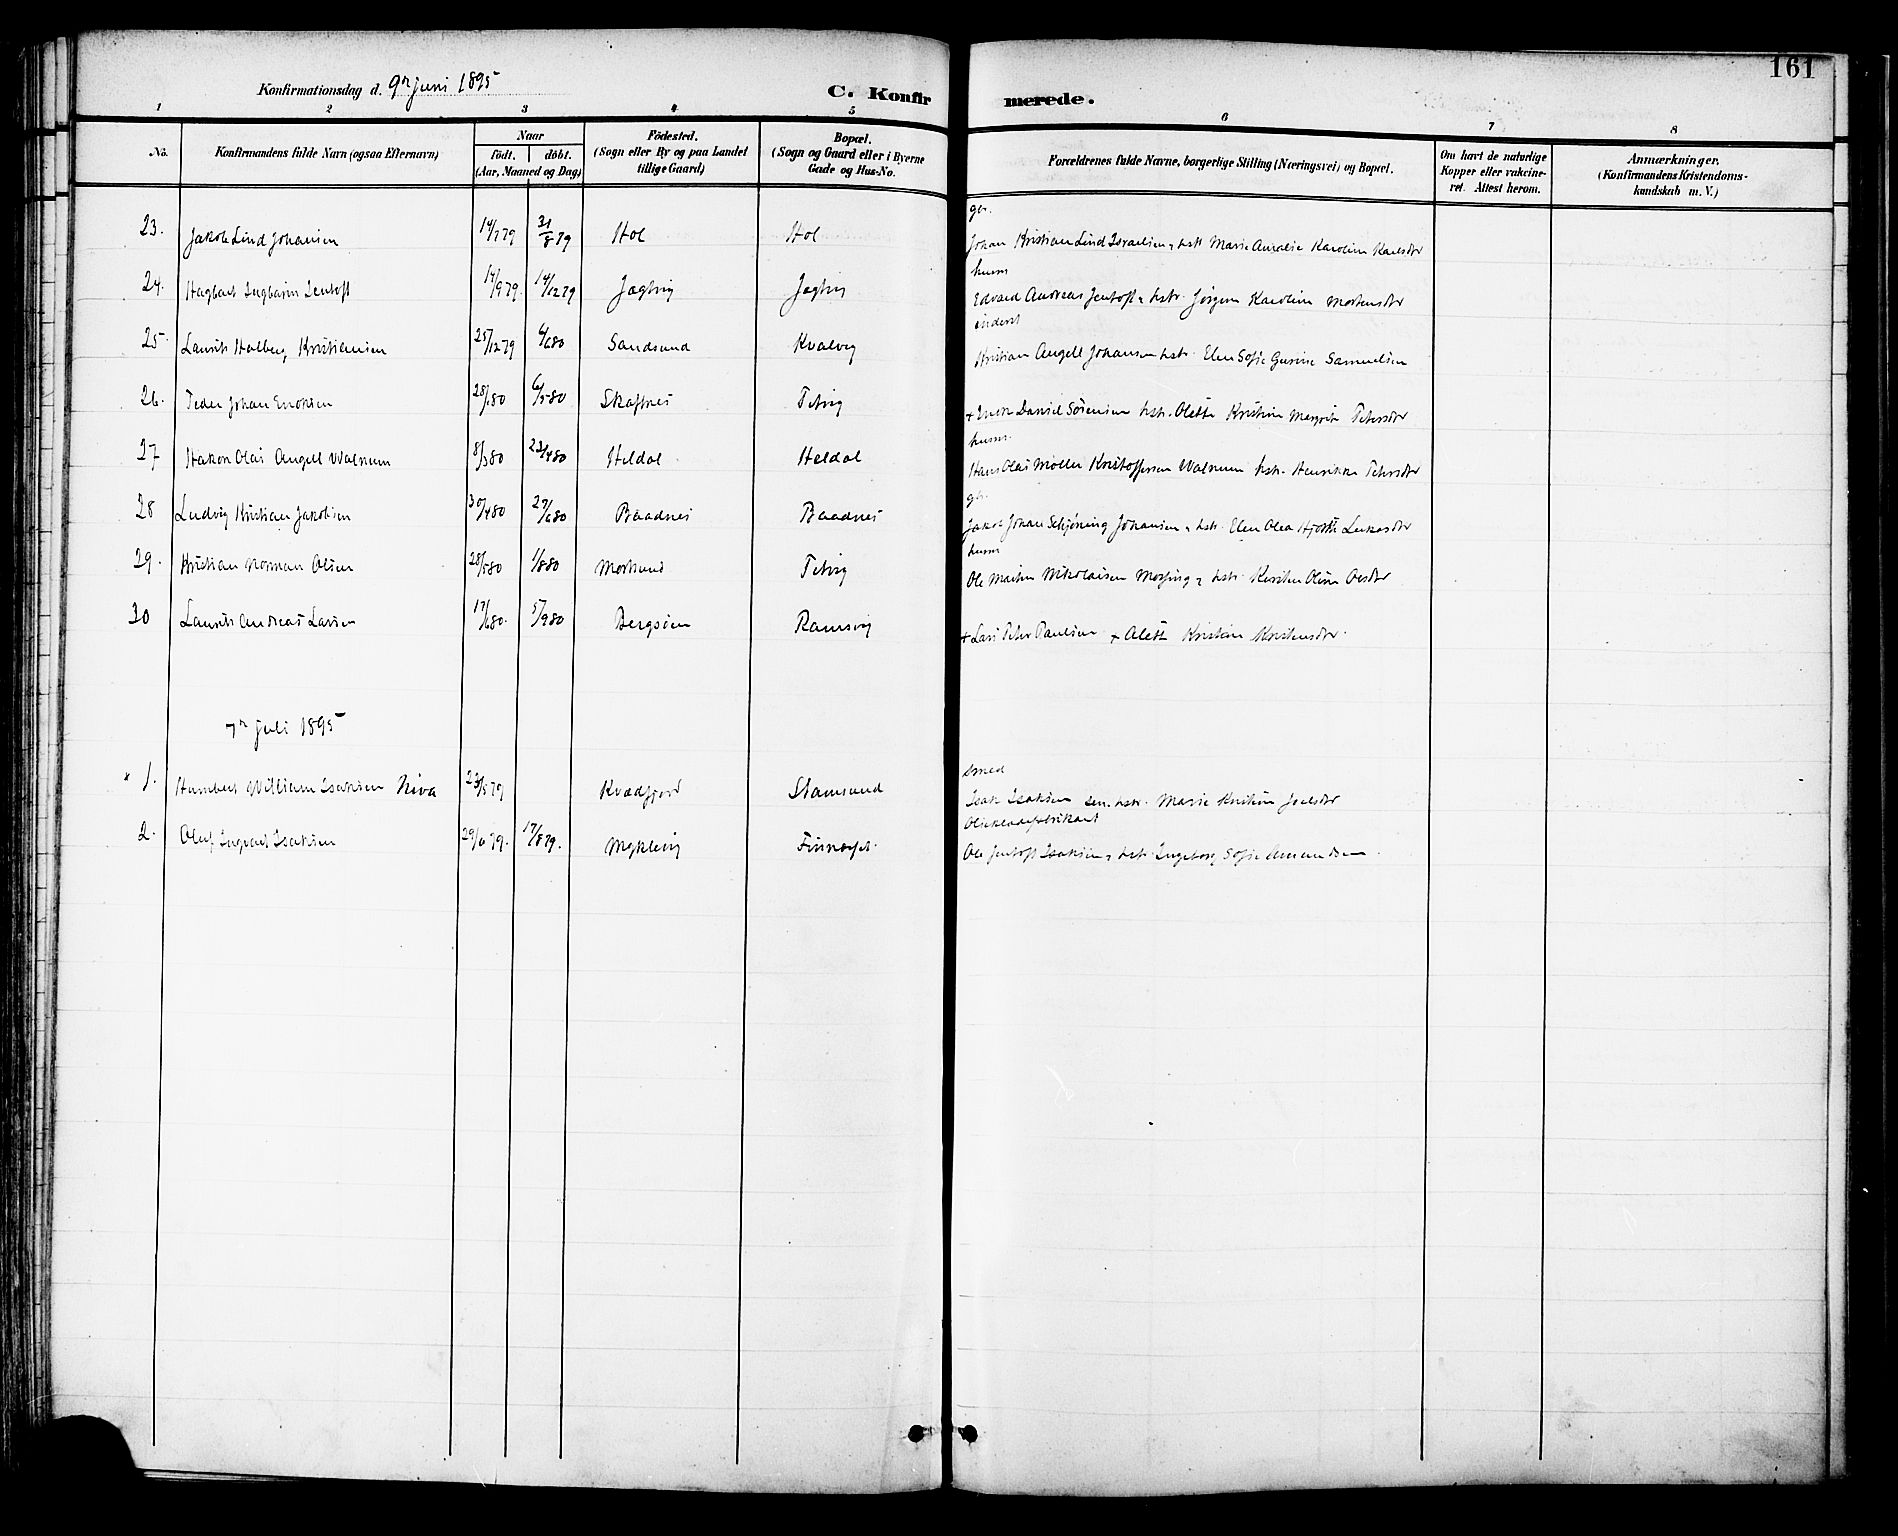 161
Konfirmationsdag d. 9de juni 1895
C. Konfirmerede.
1 2 3 4 5 6 7 8
No.
Konfirmandens fulde Navn (ogsaa Efternavn)
Naar
födt. döbt.
(Aar, Maaned og Dag)
Födested.
(Sogn eller By og paa Landet
tillige Gaard)
Bopæl.
(Sogn og Gaard eller i Byerne
Gade og Hus-No.
Forældrenes fulde Navne, borgerlige Stilling (Næringsvei) og Bopæl.
Om havt de naturlige
Kopper eller vakcine-
ret. Attest herom.
Anmærkninger.
(Konfirmandens Kristendoms-
kundskab m. V.)
gbr.
23. Jakob Lind Johansen 14/7 79 31/8 79 Hol Hol Johan Kristian Lind Israelsen, hstr Marie Amalie Karoline Karlsdtr
husm
24. Hagbart Ingbarm Jentoft 14/9 79. 14/12 79 Jægtvig Jægtvig Edvard Andreas Jentoft, hstr. Jörgine Karoline Mortensdtr
inderst
25. Laurits Holberg Kristiansen 25/12 79 6/6 80 Sandsund Kvalvig Kristian Angell Johansen hstr. Elen Sofie Gurine Samuelsen
26. Peder Johan Enoksen 28/1 80 6/5 80 Skaftnes Petvig + Enok Daniel Sörensen hstr. Olette Kristine Margrete Petersdtr
husm.
27 Hakon Olai Angell Walnum 8/3 80 23/4 80 Heldal Heldal Hans Olai Möller Kristoffersen Walnum hstr. Henrikke Petersdtr
gbr.
28 Ludvig Kristian Jakobsen 30/4 80 27/6 80 Baadnes Baadnes Jakob Johan Schjöning Johansen, hstr. Elen Olea Hjorth Lukasdtr
husm
29. Kristian Norman Olsen 28/5 80 1/8 80 Mortsund Petvig Ole Martin Nikolaisen Morfing, hstr. Kirsten Oline Olesdtr
30 Laurits Andreas Larsen 17/6 80. 5/9 80 Bergsöen Ramsvig + Lars Peter Paulsen + Alette Kristine Kristensdtr.
7de juli 1895
smed
x 1. Humbert William Isaksen Niva 23/5 79 Kvædfjord Stamsund Isak Isaksen sen. hstr. Marie Kristine Joelsdtr
Olieklædefabrikant
2. Oluf Ingvart Isaksen 29/6 79. 17/8 79. Myklevig Finnesset. Ole Jentoft Isaksen, hstr. Ingeborg Sofie Amundsen.